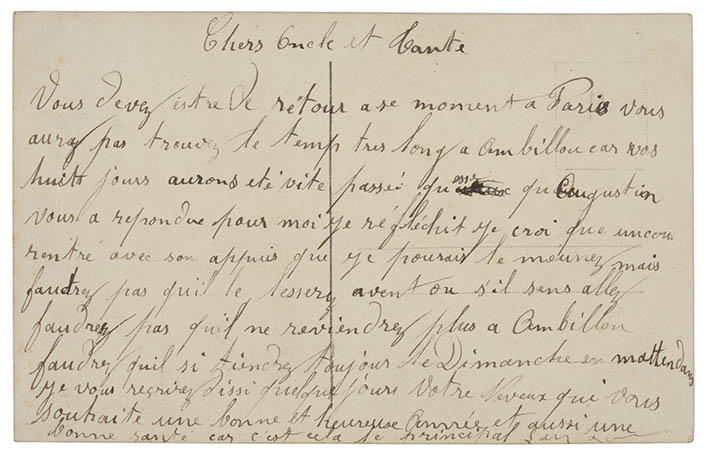 Chers Oncle et Tante
Vous devez istre de retour a se moment a Paris vous
aurez pas trouvez le temp tres long a Ambillou car vos
huits jours aurons eté vite passé qu qu Augustin
vous a repondue pour moi je réfléchit je croi que un cou
rentré avec son appuis que je pourais le meunez mais
faudrez pas quil le lesserez avent ou s'il sens allez
faudrez pas quil ne reviendrez plus a Ambillou
faudrez quil si tiendrez toujour le Dimanche en mattendans
je vous recrirez dissi quelque jours Votre Neveux qui vous
souhaite une bonne et heureuse Année et aussi une
bonne santé car c'est cela le principal